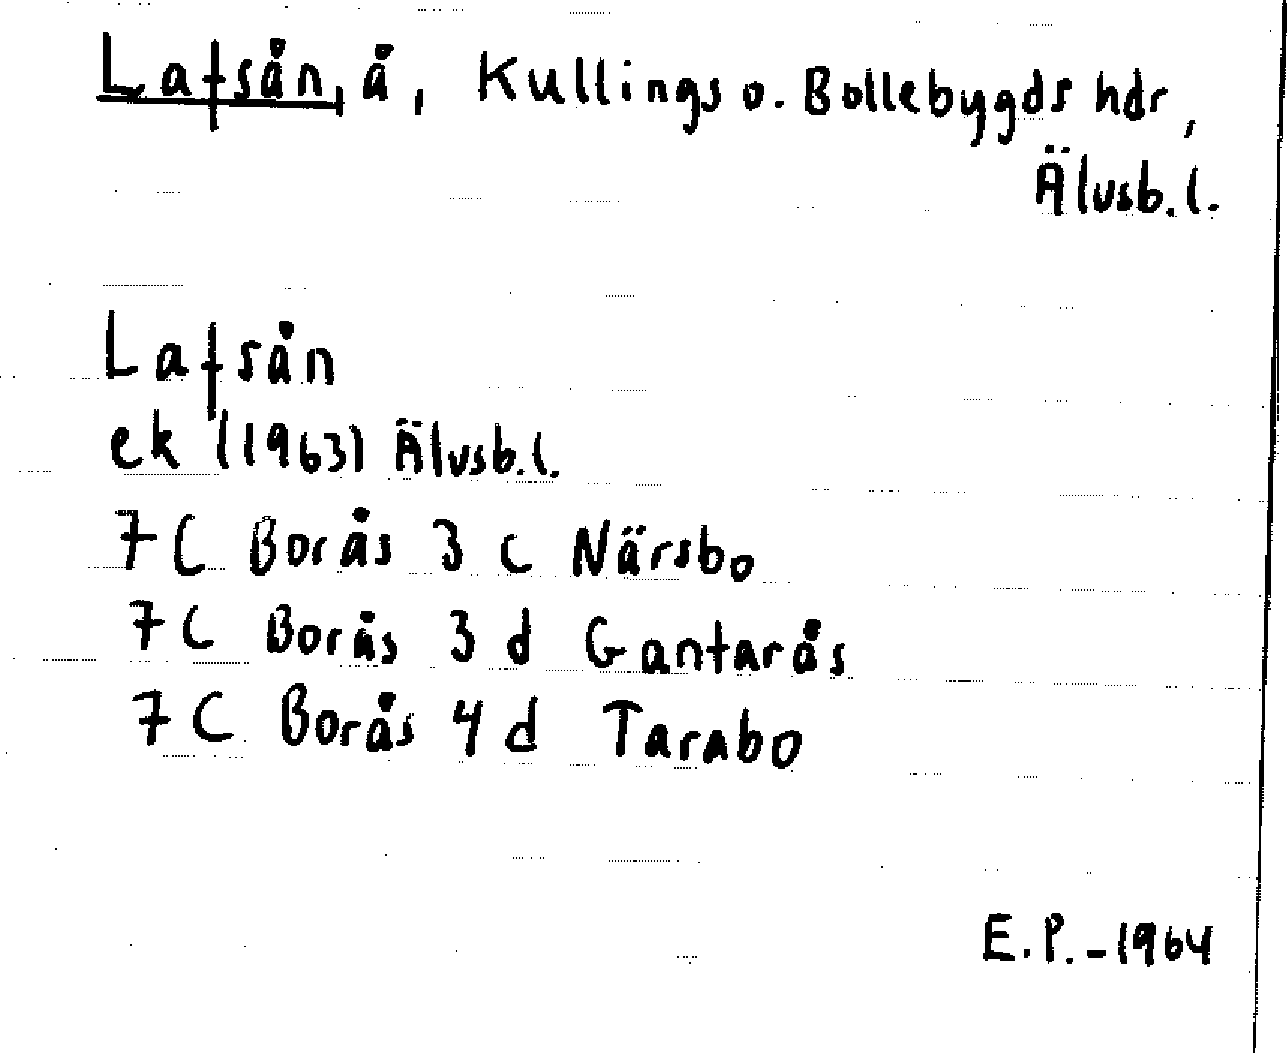 Lafsån, å, Kullings o. Bollebygds hdr,
Älvsb.l.
Lafsån
ek (1963) Älvsb.l.
7C Borås 3 c Närsbo
7C Borås 3 d Gantarås
7C Borås 4 d Tarabo
E.P.-1964